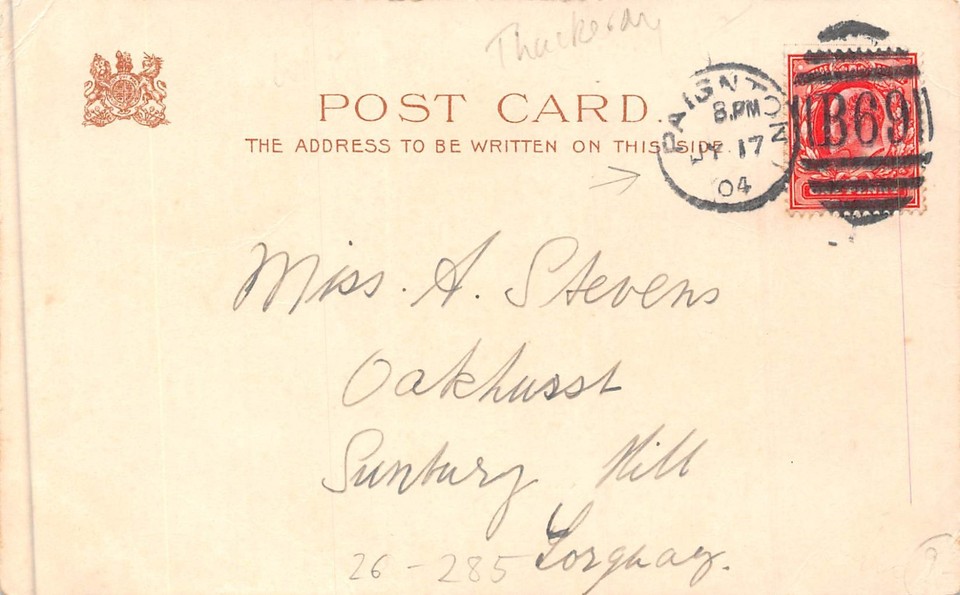 Thackeray
POST CARD.
THE ADDRESS TO BE WRITTEN ON THIS SIDE.
PAIGNTON
8.PM
JY 17
04
B69
Miss. A. Stevens
Oakhurst
Sunbury Hill
Torquay.
26-285